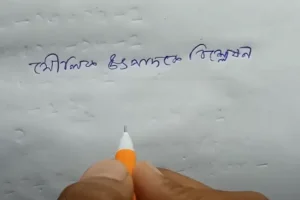 মৌলিক উৎপাদকে বিশ্লেষন